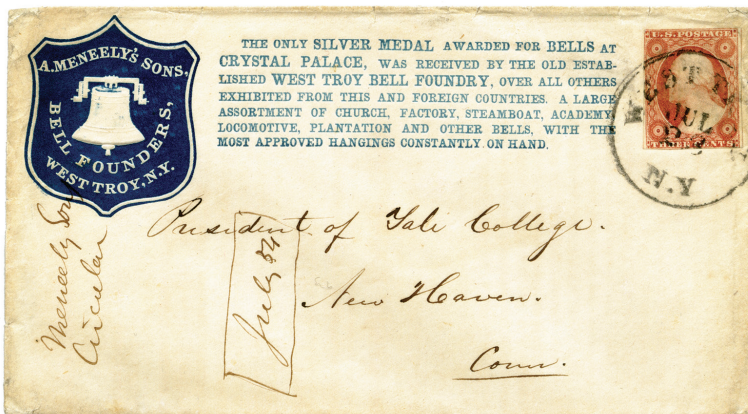 A. MENEELY'S SONS,
BELL FOUNDERS,
WEST TROY, N.Y.
THE ONLY SILVER MEDAL AWARDED FOR BELLS AT
CRYSTAL PALACE, WAS RECEIVED BY THE OLD ESTAB-
LISHED WEST TROY BELL FOUNDRY, OVER ALL OTHERS
EXHIBITED FROM THIS AND FOREIGN COUNTRIES. A LARGE
ASSORTMENT OF CHURCH, FACTORY, STEAMBOAT, ACADEMY
LOCOMOTIVE, PLANTATION AND OTHER BELLS, WITH THE
MOST APPROVED HANGINGS CONSTANTLY ON HAND.
U.S. POSTAGE
THREE CENTS
WEST
JUL
N.Y
President of Yale College.
New Haven.
Conn.
July 54
Meneely Sons
Circular